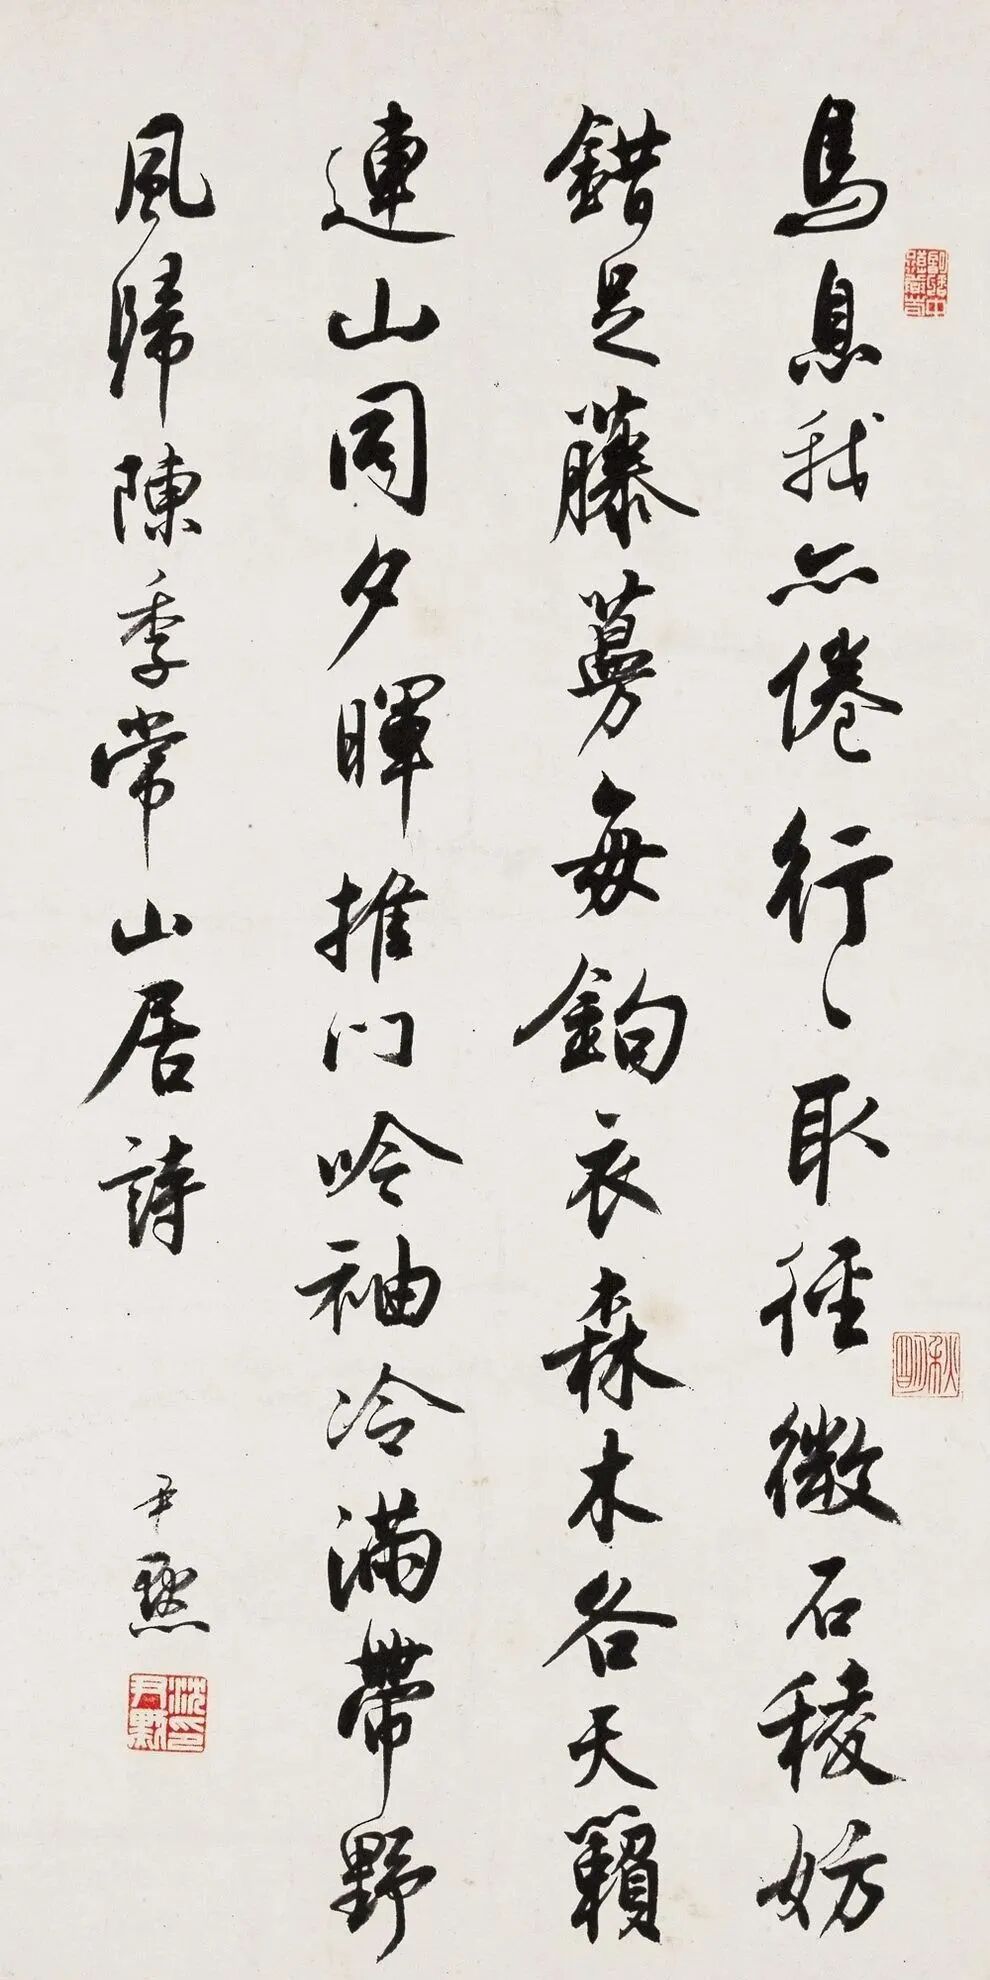 馬息我亦倦行〻取徑微石稜妨
錯足藤蔓每鉤衣森木各天籟
連山同夕暉推門吟袖冷滿帶野
風歸陳季常山居詩
尹默
沈尹默印